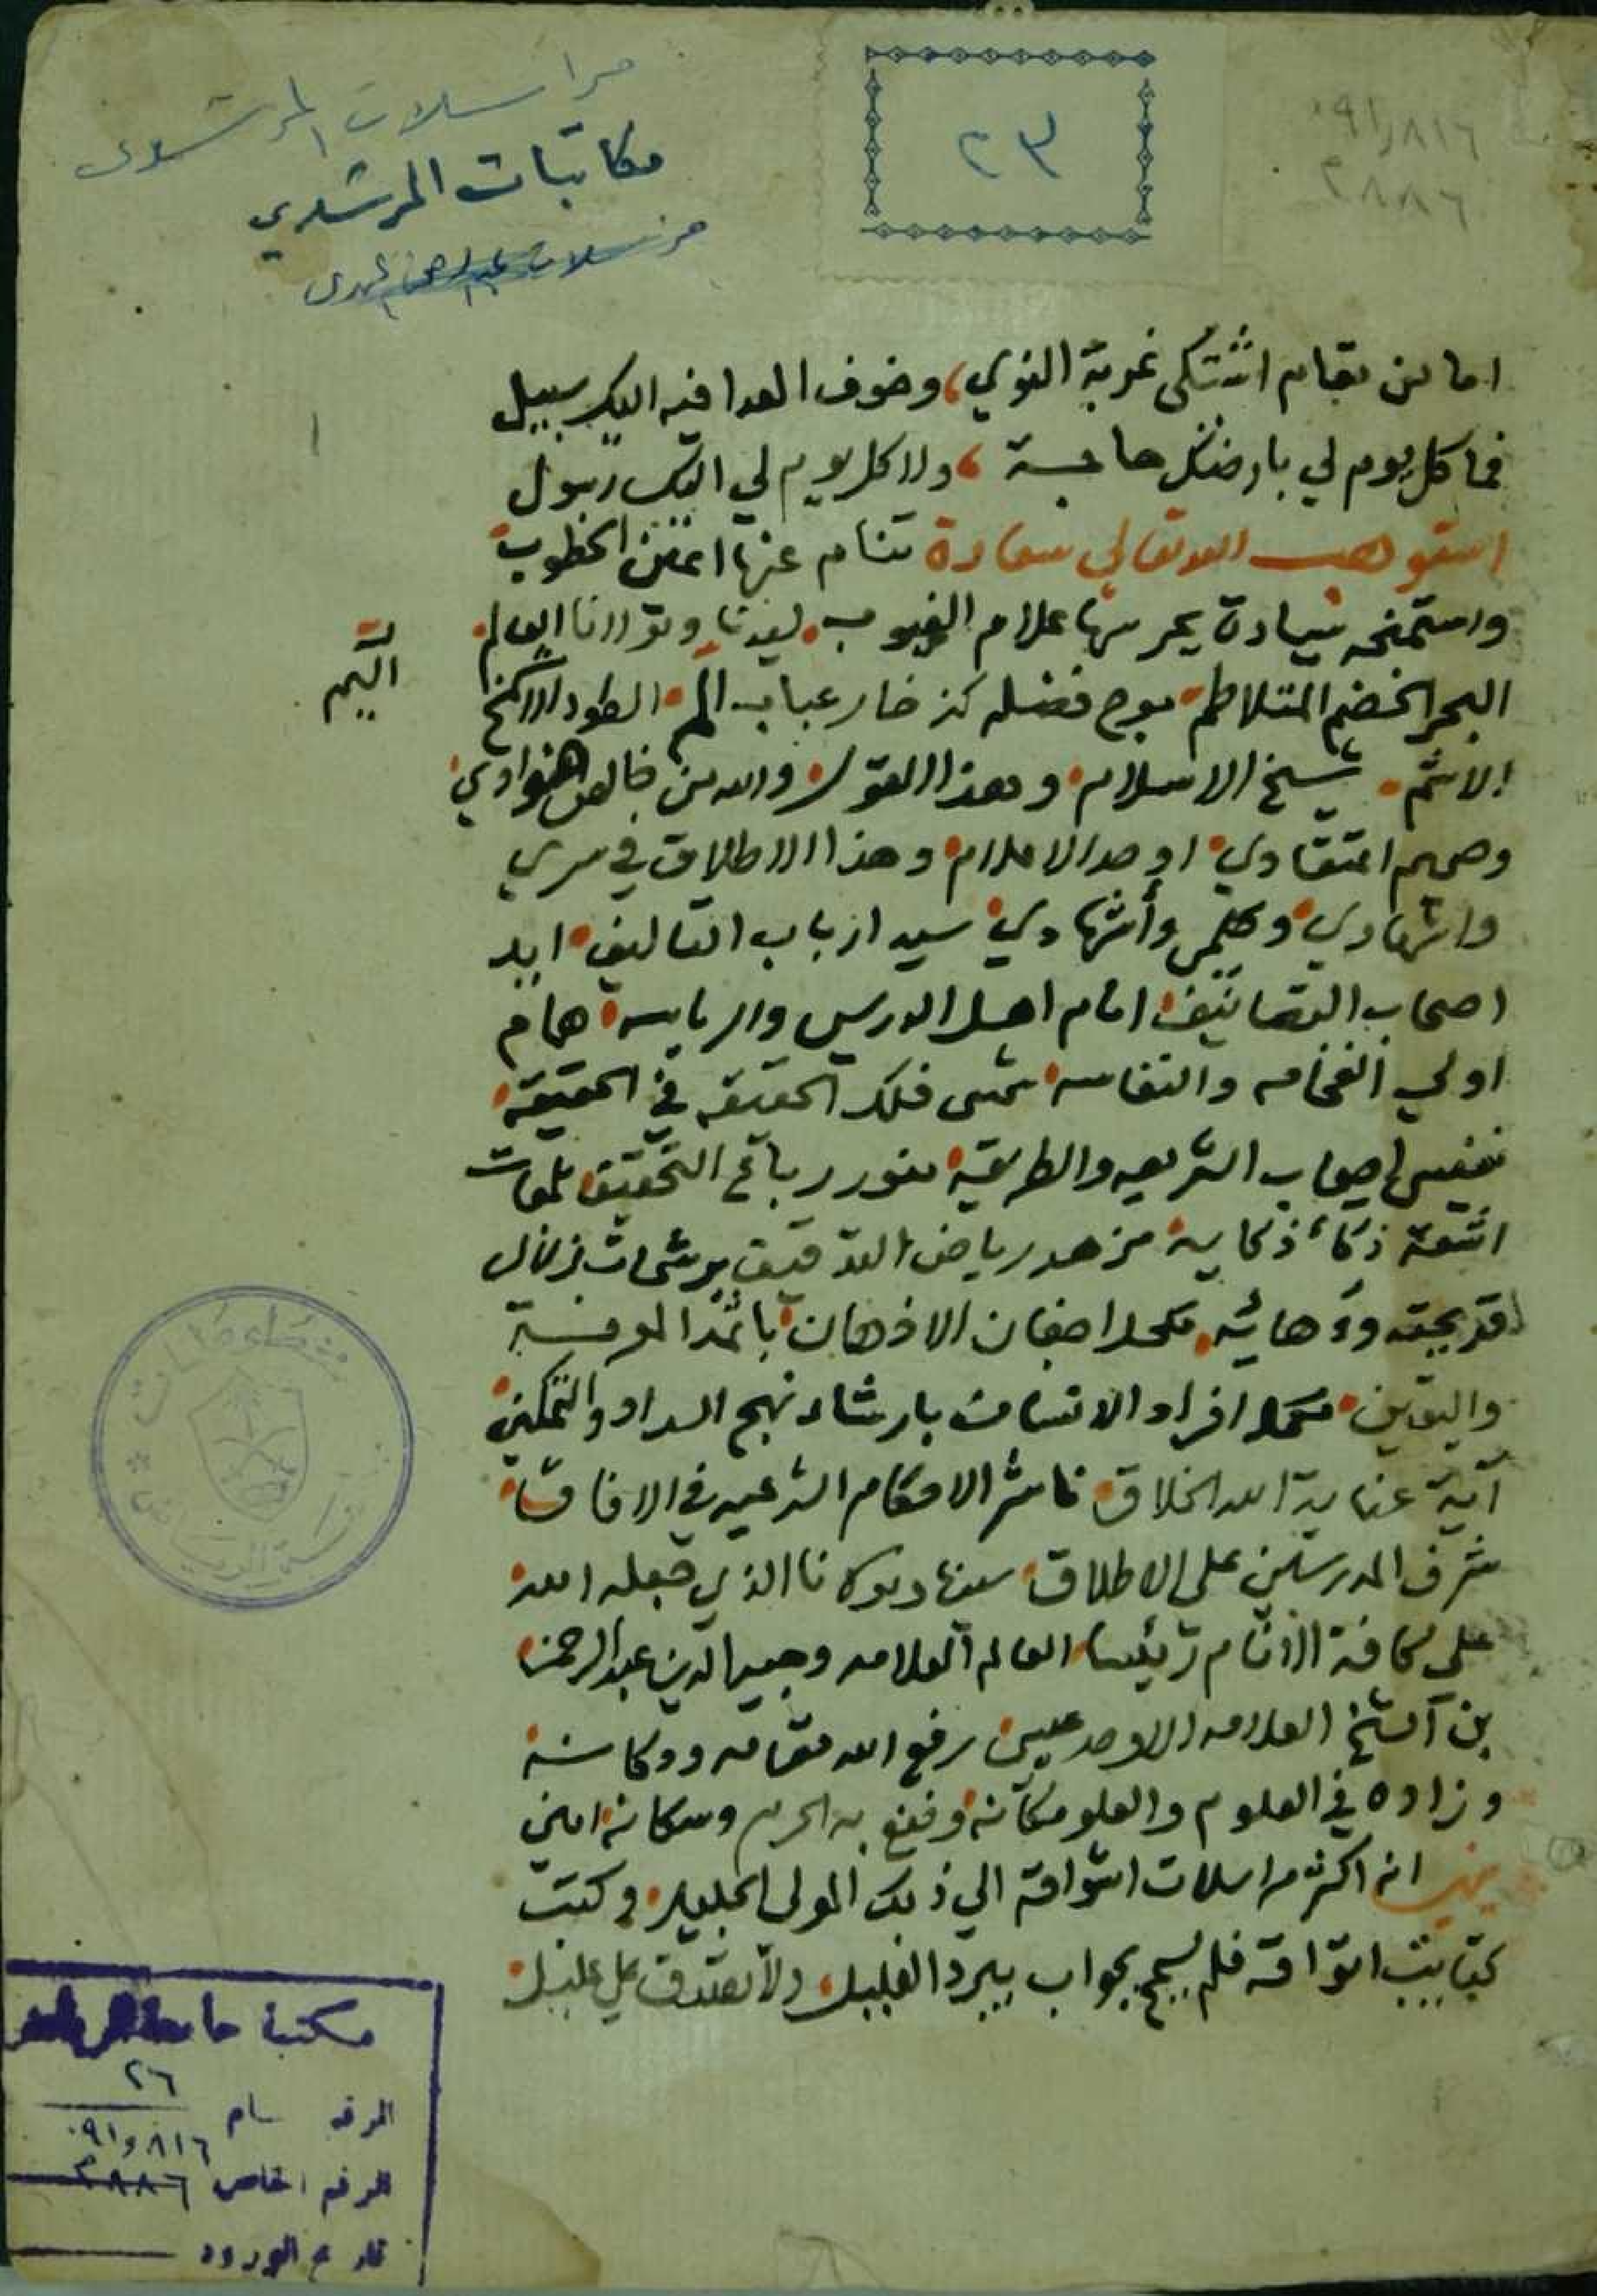 مراسلات المرشدي
مكاتبات المرشدي
مراسلات
٢٣
٠٩١٫٨١٦
٢٨٨٦
اما من مقام اشتكى غربة النوي، وخوف العدا فيه اليك سبيل
فما كل يوم لي بارضك حاجة، ولا كل يوم لي اليك رسول
استوهب الله تعالى سعادة تنام عنها اعين الخطوب
واستمنحه سيادة يحرسها علام الغيوب لسيدنا ومولانا العالم
البحر الخضم المتلاطم موج فضله كزخار عباب اليم الطود الاشمخ
اليم
الاشم شيخ الاسلام وهذا القول والله من خالص فوادي
وصميم اعتقادي اوحد الاعلام وهذا الاطلاق في سري
واشهادي سيد ارباب التاليف ايد
اصحاب التصانيف امام اهل الدرس والرياسه همام
اولي الفخامه والنفاسه شمس فلك الحقيقه في الحقيقة
نفيس اصحاب الشريعه والطريقه منور رباع التحقيق بلمعات
اشعة ذكاء ذكايه مزهر رياض التدقيق برشحات زلال
قريحته ودهائه مكحل اجفان الاذهان باثمد المعرفة
واليقين مكمل افراد الانسان بارشاد نهج السداد والتمكين
آية عناية الله الخلاق ناشر الاحكام الشرعيه في الافاق
شرف المدرسين على الاطلاق سيدنا ومولانا الذي جعله الله
على كافة الانام رئيسا العالم العلامه وجيه الدين عبد الرحمن
بن الشيخ العلامه الاوحد عيسى رفع الله مقامه ومكانه
وزاده في العلوم والعلو مكانه ونفع به الحرم وسكانه امين
ينهي انه اكثر مراسلات اشواقه الي ذلك المولى الجليل وكتب
كتايب اتواقه فلم يسمح بجواب يبرد الغليل ولا تصدق على عليل
مخطوطات
جامعة الرياض
مكتبة جامعة الرياض
٢٦
الرقم العام
٠٩١٫٨١٦
الرقم الخاص ٢٨٨٦
تاريخ الورود